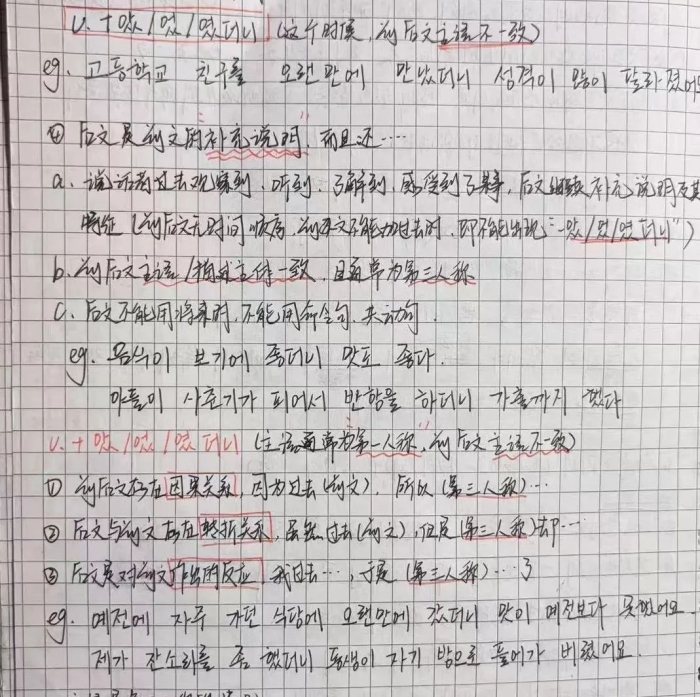 v. + 았/었/였더니 (这个时候, 前后文主语不一致)
eg. 고등학교 친구를 오랜만에 만났더니 성격이 많이 달라졌어
④ 后文是前文的"补充说明", 而且还……
a. 说话者过去观察到、听到、了解到、感受到了某事, 后文继续补充说明及其
特征 (前后文无时间顺序 前半文不能加过去时, 即不能出现"-았/었/였더니")
b. 前后文主语/描述主体一致, 且通常为第三人称
c. 后文不能用将来时, 不能用命令句, 共动句.
eg. 음식이 보기에 좋더니 맛도 좋다.
아들이 사춘기가 되어서 반항을 하더니 가출까지 했다
v. + 았/었/였더니 (主语通常为"第一人称", 前后文主语不一致)
① 前后文存在因果关系, 因为过去(前文), 所以(第三人称)…
② 后文与前文存在转折关系, 虽然过去(前文), 但是(第三人称)却…
③ 后文是对前文作出的反应 我过去…, 于是(第三人称)…了
eg. 예전에 자주 가던 식당에 오랜만에 갔더니 맛이 예전보다 못했어요.
제가 잔소리를 좀 했더니 동생이 자기 방으로 들어가 버렸어요.